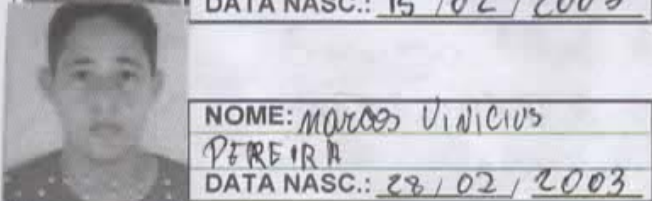 DATA NASC.: 15 / 02 / 2003
NOME: Marcos Vinicius
PEREIRA
DATA NASC.: 28 / 02 / 2003